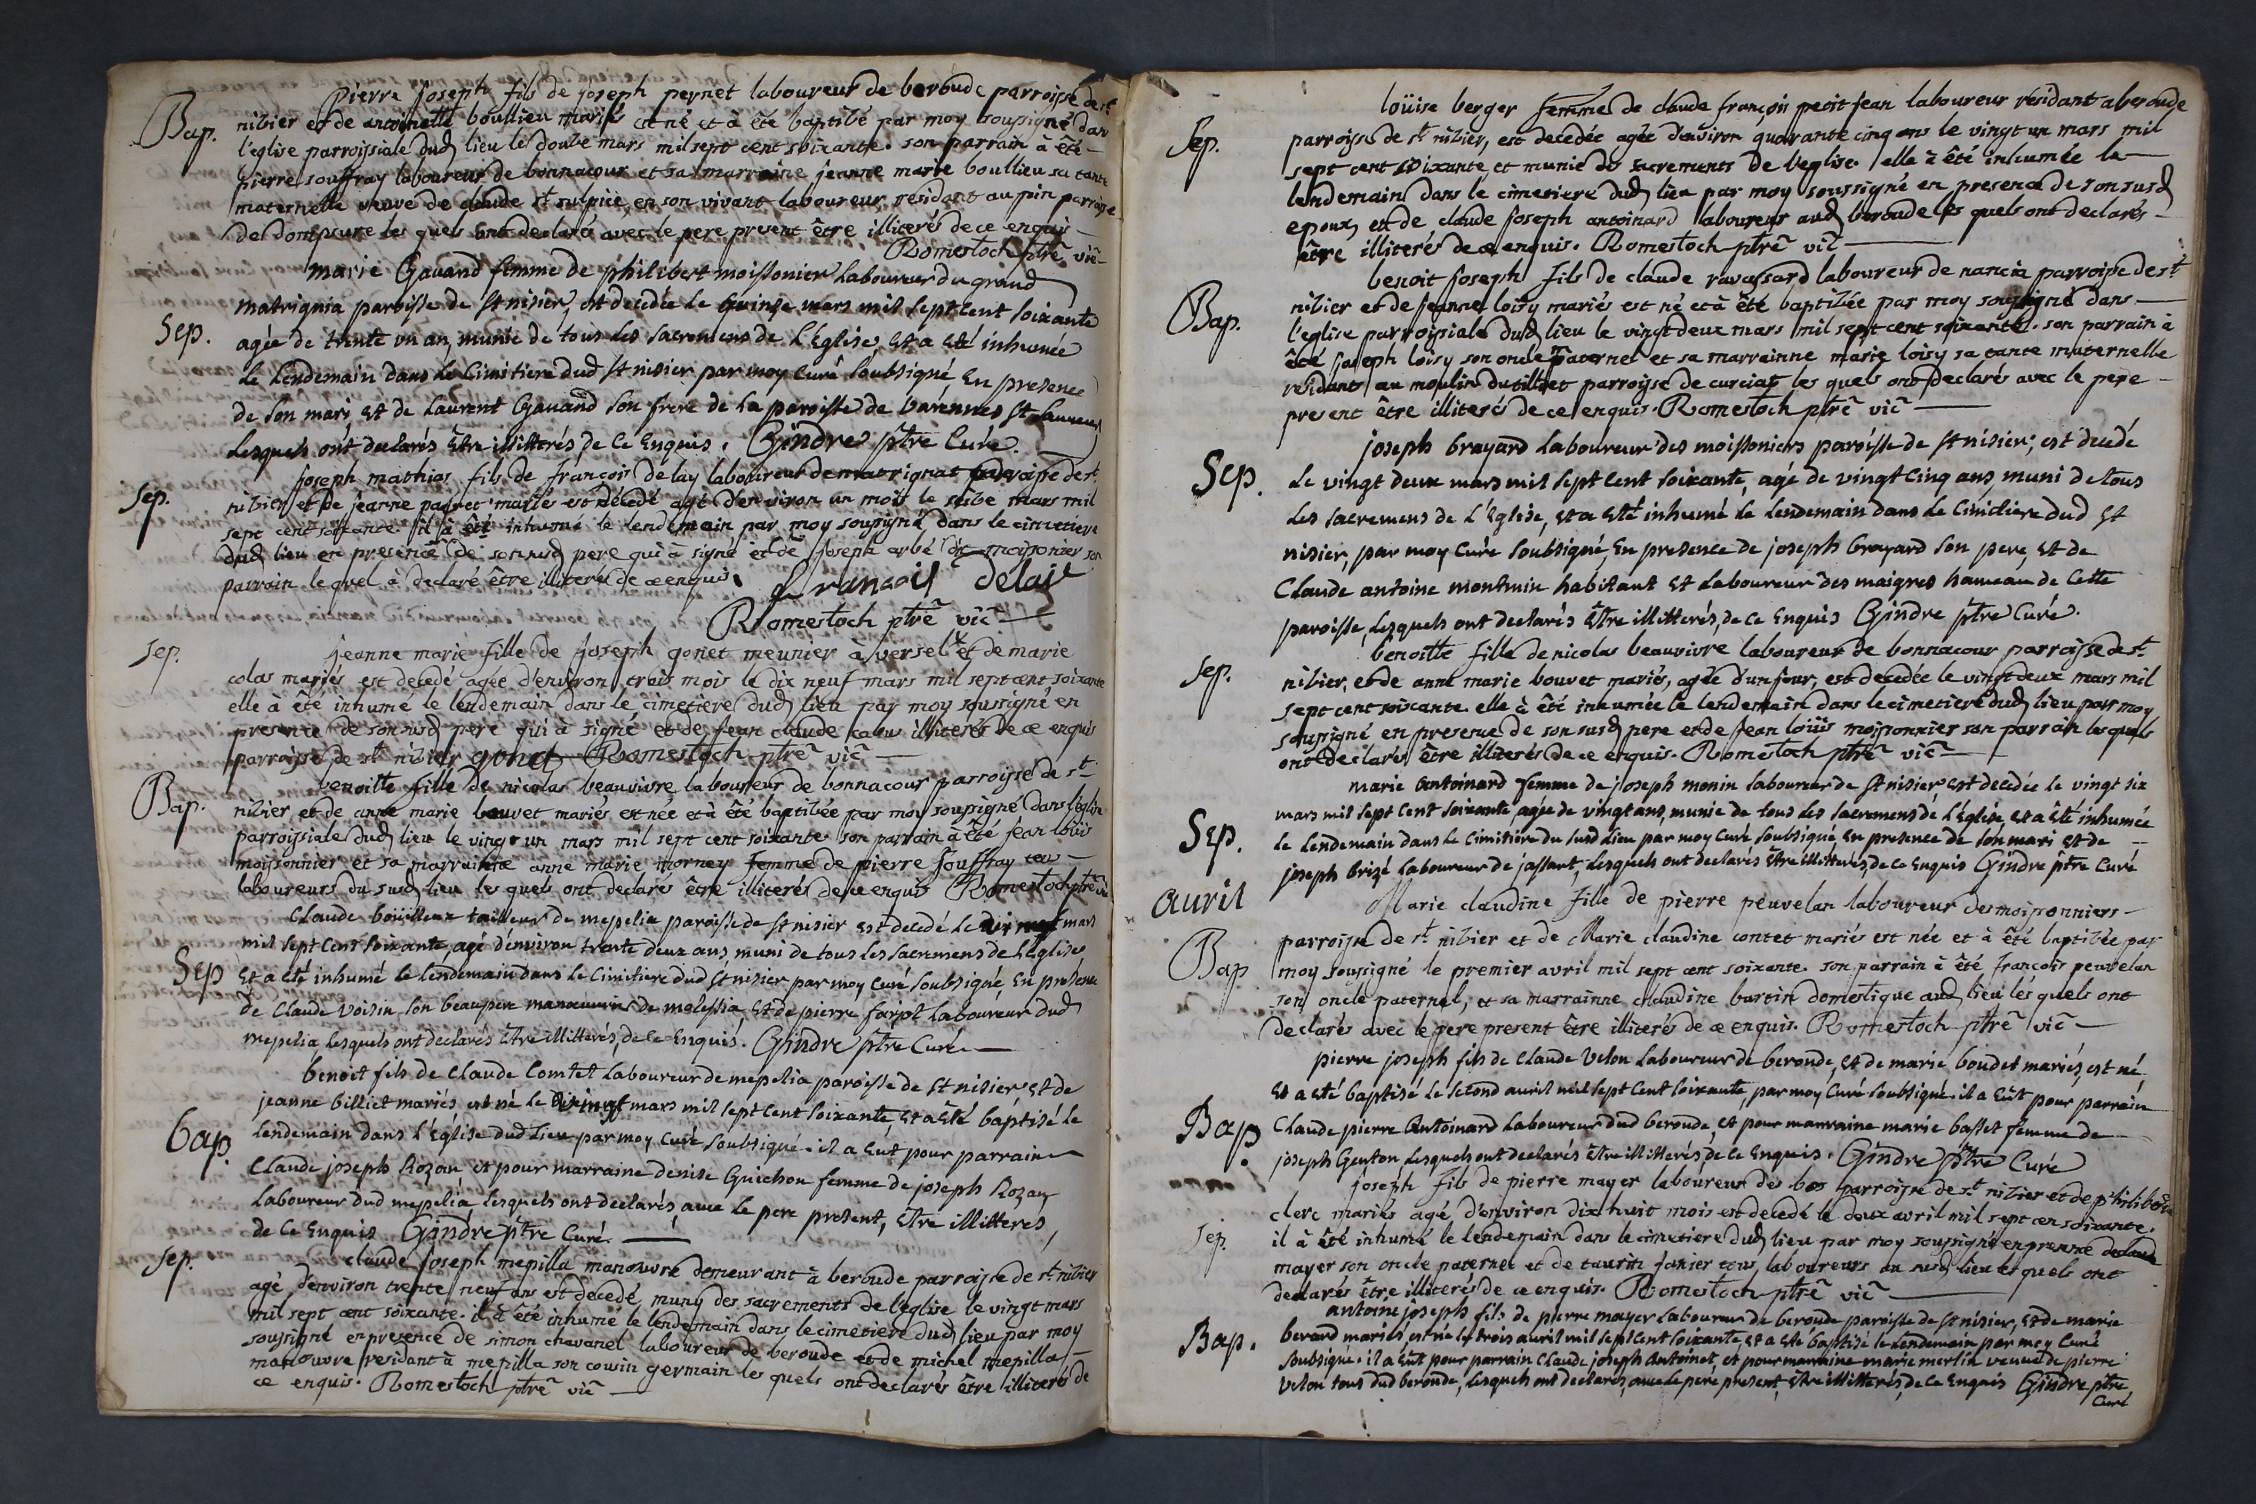 Bap. Pierre joseph fils de joseph peynet laboureur de beroude parroisse de st
nibier et de antoinette boullieu mariés est né et à été baptibé par moy soussigné dans
l'eglise parroissiale dud lieu le doube mars mil sept cent soixante. son parrain à été
pierre souffray laboureur de bonnacour et sa marraine jeanne marie boullieu sa tante
maternelle veuve de claude st sulpice, en son vivant laboureur residant au pin parroisse
de domsure les quels ont declarés avec le pere present être illiterés de ce enquis
Romestoch ptrē vic̄
marie Gavand femme de philibert moissonier Laboureur du grand
matrignia paroisse de St nisier, est decedée le Quinze mars mil sept cent soixante
Sep. agée de trente un an, munie de tous les sacremens de L'Eglise, et a eté inhumée
le Lendemain dans le Cimitiere dud St nisier par moy Curé soubsigné En presence
de son mari, et de Laurent Gavand son frere de la paroisse de varennes St Sauveur
Lesquels ont declarés Etre illitterés, de ce Enquis. Gindre ptre Curé.
Sep. joseph mathias fils de françois delay laboureur de matrignat parroisse de st
nibier et de jeanne paquet mariés est decedé agé d'environ un mois le seibe mars mil
sept cent soixante. il à été inhumé le lendemain par moy soussigné dans le cimetiere
dud lieu en presence de son susd pere qui à signé et de joseph arbé dit moissonier son
parrain le quel à declaré être illiteré de ce enquis. francois delait
Romestoch ptrē vic̄
Sep. jeanne marie fille de joseph gonet meunier à versel et de marie
colas mariés est decedé agée d'environ trois mois le dix neuf mars mil sept cent soixante
elle à été inhumé le lendemain dans le cimetiere dud lieu par moy soussigné en
presence de son susd pere qui à signé et de jean claude illiterés de ce enquis
parroisse de st nibier gonet Romestoch ptrē vic̄
Bap. benoitte fille de nicolas beauvivre laboureur de bonnacour parroisse de st
nibier et de anne marie bouvet mariés est née et à été baptibée par moy soussigné dans l'eglise
parroissiale dud lieu le vingt un mars mil sept cent soixante. son parrain à été jean loüis
moissonnier et sa marrainne anne marie morney femme de pierre souffray tou
laboureurs du susd lieu les quels ont declarés être illiterés de ce enquis Romestoch ptrē vic̄
Claude boüilleur tailleur de mepelia paroisse de St nisier est decedé le dix neuf mars
mil sept cent soixante, agé d'environ trente deux ans, muni de tous les sacremens de L'Eglise
Sep Et a eté inhumé le lendemain dans le Cimitiere dud St nisier par moy Curé soubsigné, En présence
de Claude voisin son beaupere manoeuvre de malessia, Et de pierre Laboureur dud
mepelia Lesquels ont declarés Etre illitterés, de ce Enquis. Gindre ptre Curé
benoit fils de Claude Comtet Laboureur de mepelia paroisse de St nisier et de
jeanne billiet mariés est né le mars mil sept cent soixante, et a eté baptisé le
bap. Lendemain dans l'Eglise dud Lieu par moy Curé soubsigné. il a Eüt pour parrain
Claude joseph Rozan et pour marraine denise Guichon femme de joseph Rozan
Laboureur dud mepelia, lesquels ont declarés, avec le pere present, Etre illitterés,
de ce Enquis Gindre ptre Curé.
Sep. claude joseph mepilla manouvre demeurant à beroude parroisse de st nibier
agé d'environ trente neuf ans est decedé muny des sacrements de l'eglise le vingt mars
mil sept cent soixante. il à été inhumé le lendemain dans le cimetiere dud lieu par moy
soussigné en presence de simon chavanel laboureur de beroude et de michel mepilla
manouvre residant à mepilla son cousin germain les quels ont declarés être illiterés de
ce enquis. Romestoch ptrē vic̄
loüise berger femme de claude françois petit jean laboureur residant a beroude
Sep. parroisse de st nibier, est decedée agée d'environ quarante cinq ans le vingt un mars mil
sept cent soixante, et munie des sacrements de l'eglise. elle à été inhumée le
lendemain dans le cimetiere dud lieu par moy soussigné en presence de son susd
epoux, et de claude joseph antoinard laboureur aud beroude les quels ont declarés
être illiterés de ce enquis. Romestoch ptrē vic̄
benoit joseph fils de claude ravassard laboureur de nancia parroisse de st
Bap. nibier et de jeanne loisy mariés est né et à été baptibée par moy soussigné dans
l'eglise parroissiale dud lieu le vingt deux mars mil sept cent soixante. son parrain à
été joseph loisy son oncle paternel et sa marrainne marie loisy sa tante maternelle
residants au moulin du tillet parroisse de curciat les quels ont declarés avec le pere
present être illiterés de ce enquis. Romestoch ptrē vic̄
joseph brayard Laboureur des moissoniers paroisse de St nisier, est decedé
Sep. Le vingt deux mars mil sept cent soixante, agé de vingt cinq ans, muni de tous
Les sacremens de L'Eglise, et a eté inhumé le Lendemain dans le Cimitiere dud St
nisier, par moy Curé soubsigné, En presence de joseph brayard son pere, et de
Claude antoine montmin habitant et Laboureur des maigres hameau de Cette
paroisse, Lesquels ont declarés Etre illitterés, de ce Enquis Gindre ptre Curé.
Sep. benoitte fille de nicolas beauvivre laboureur de bonnacour parroisse de st
nibier, et de anne marie bouvet mariés, agée d'un jour, est decedée le vingt deux mars mil
sept cent soixante. elle à été inhumée le lendemain dans le cimetiere dud lieu par moy
soussigné en presence de son susd pere et de jean loüis moissonnier son parrain les quels
ont declarés être illiterés de ce enquis. Romestoch ptrē vic̄
marie Antoinard femme de joseph monin laboureur de St nisier est decedée le vingt six
mars mil sept cent soixante, agée de vingt ans, munie de tous les sacremens de L'Eglise, et a été inhumée
Sep. le Lendemain dans le Cimitiere du susd Lieu par moy Curé soubsigné En presence de son mari et de
joseph brizé Laboureur de jassant, Lesquels ont declarés Etre illitterés, de ce Enquis Gindre ptre Curé
avril
Marie claudine fille de pierre peuvelan laboureur des moissonniers
Bap parroisse de st nibier et de Marie claudine contet mariés est née et à été baptibée par
moy soussigné le premier avril mil sept cent soixante. son parrain à été françois peuvelan
son oncle paternel, et sa marrainne claudine burtin domestique aud lieu les quels ont
declarés avec le pere present être illiterés de ce enquis. Romestoch ptrē vic̄
pierre joseph fils de Claude velon Laboureur de beronde, et de marie boudet mariés, est né
Et a eté baptisé le second avril mil sept cent soixante, par moy Curé soubsigné. il a Eüt pour parrain
Bap. Claude pierre Antoinard Laboureur dud beronde, et pour marraine marie basset femme de
joseph Genton Lesquels ont declarés Etre illitterés, de ce Enquis. Gindre ptre Curé
joseph fils de pierre mayer laboureur des bos parroisse de st nibier et de philiberte
clerc mariés agé d'environ dix huit mois est decedé le deux avril mil sept cen soixante.
Sep. il à été inhumé le lendemain dans le cimetiere dud lieu par moy soussigné en presence de claude
mayer son oncle paternel et de taurin tous laboureurs au susd lieu les quels ont
declarés être illiterés de ce enquis. Romestoch ptrē vic̄
antoine joseph fils de pierre mayer Laboureur de beroude paroisse de St nisier, et de marie
Bap. berard mariés, est né le trois avril mil sept cent soixante, et a eté baptisé le Lendemain par moy Curé
soubsigné. il a Eüt pour parrain Claude joseph Antoinet, et pour marraine marie merlin veuve de pierre
velon tous dud beronde, Lesquels ont declarés, avec le pere present, Etre illitterés, de ce Enquis Gindre ptre
Curé